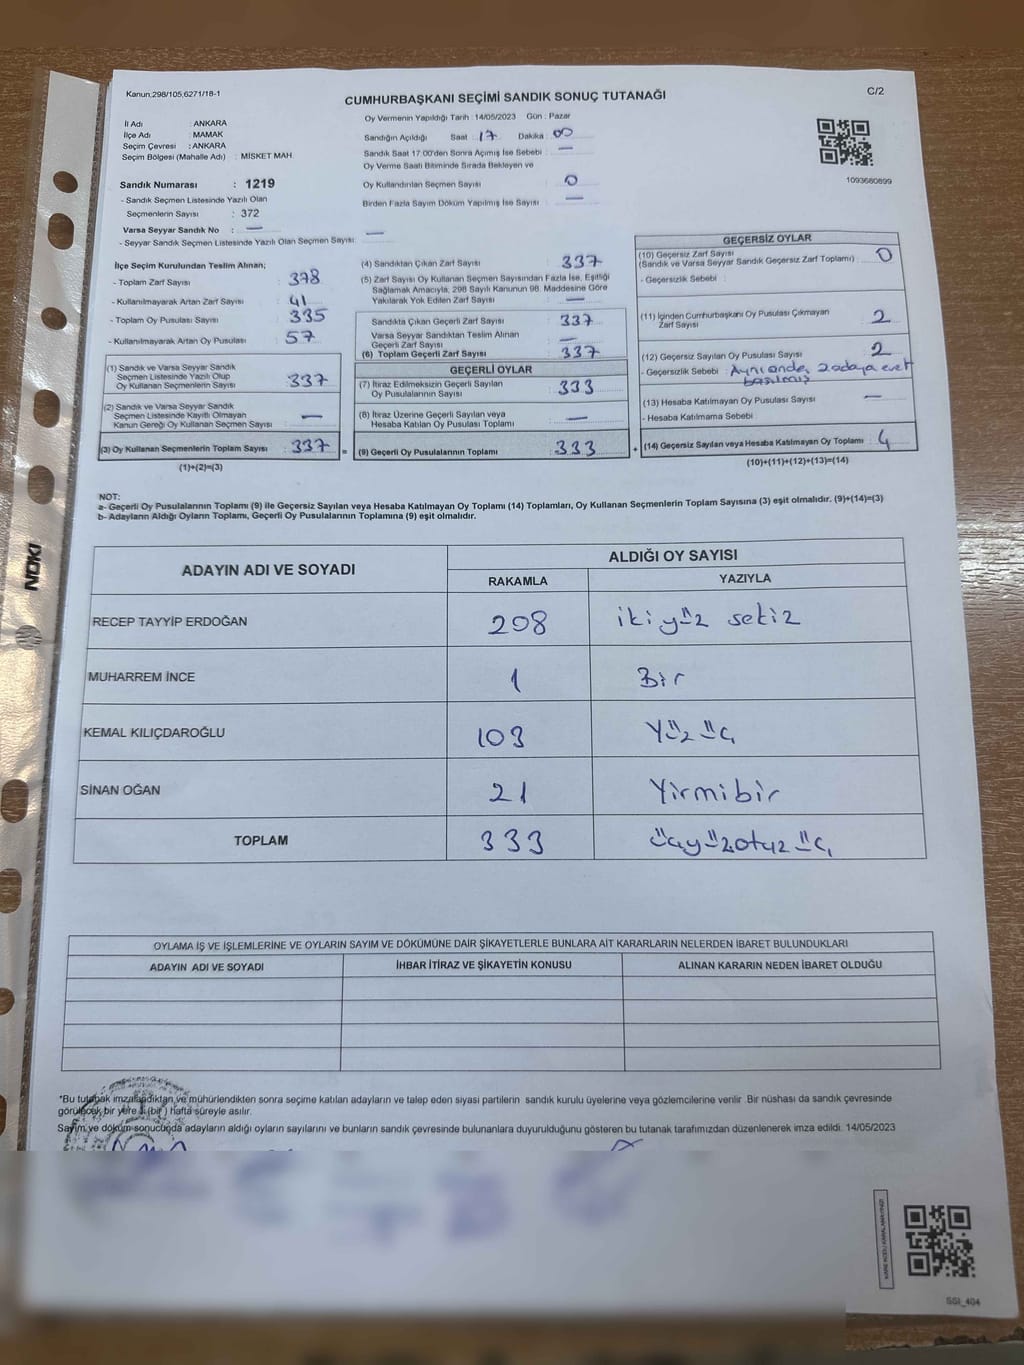 Kanun;298/105,6271/18-1
C/2
CUMHURBAŞKANI SEÇİMİ SANDIK SONUÇ TUTANAĞI
İl Adı : ANKARA
İlçe Adı : MAMAK
Seçim Çevresi : ANKARA
Seçim Bölgesi (Mahalle Adı) : MİSKET MAH
Sandık Numarası : 1219
- Sandık Seçmen Listesinde Yazılı Olan
Seçmenlerin Sayısı : 372
Varsa Seyyar Sandık No : —
- Seyyar Sandık Seçmen Listesinde Yazılı Olan Seçmen Sayısı: —
Oy Vermenin Yapıldığı Tarih : 14/05/2023 Gün : Pazar
Sandığın Açıldığı Saat : 17 Dakika : 00
Sandık Saat 17.00'den Sonra Açımış İse Sebebi : —
Oy Verme Saati Bitiminde Sırada Bekleyen ve
Oy Kullandırılan Seçmen Sayısı : 0
Birden Fazla Sayım Döküm Yapılmış İse Sayısı : —
1093680899
İlçe Seçim Kurulundan Teslim Alınan;
- Toplam Zarf Sayısı : 378
- Kullanılmayarak Artan Zarf Sayısı : 41
- Toplam Oy Pusulası Sayısı : 335
- Kullanılmayarak Artan Oy Pusulası : 57
(1) Sandık ve Varsa Seyyar Sandık
Seçmen Listesinde Yazılı Olup
Oy Kullanan Seçmenlerin Sayısı : 337
(2) Sandık ve Varsa Seyyar Sandık
Seçmen Listesinde Kayıtlı Olmayan
Kanun Gereği Oy Kullanan Seçmen Sayısı : —
(3) Oy Kullanan Seçmenlerin Toplam Sayısı : 337
(1)+(2)=(3)
(4) Sandıktan Çıkan Zarf Sayısı : 337
(5) Zarf Sayısı Oy Kullanan Seçmen Sayısından Fazla İse, Eşitliği
Sağlamak Amacıyla, 298 Sayılı Kanunun 98. Maddesine Göre
Yakılarak Yok Edilen Zarf Sayısı : —
Sandıkta Çıkan Geçerli Zarf Sayısı : 337
Varsa Seyyar Sandıktan Teslim Alınan
Geçerli Zarf Sayısı : —
(6) Toplam Geçerli Zarf Sayısı : 337
GEÇERLİ OYLAR
(7) İtiraz Edilmeksizin Geçerli Sayılan
Oy Pusulalarının Sayısı : 333
(8) İtiraz Üzerine Geçerli Sayılan veya
Hesaba Katılan Oy Pusulaları Toplamı : —
(9) Geçerli Oy Pusulalarının Toplamı : 333
GEÇERSİZ OYLAR
(10) Geçersiz Zarf Sayısı
(Sandık ve Varsa Seyyar Sandık Geçersiz Zarf Toplamı) : 0
- Geçersizlik Sebebi :
(11) İçinden Cumhurbaşkanı Oy Pusulası Çıkmayan
Zarf Sayısı : 2
(12) Geçersiz Sayılan Oy Pusulası Sayısı : 2
- Geçersizlik Sebebi : Aynı anda, 2 adaya evet
basılmış
(13) Hesaba Katılmayan Oy Pusulası Sayısı : —
- Hesaba Katılmama Sebebi :
(14) Geçersiz Sayılan veya Hesaba Katılmayan Oy Toplamı : 4
(10)+(11)+(12)+(13)=(14)
NOT:
a- Geçerli Oy Pusulalarının Toplamı (9) ile Geçersiz Sayılan veya Hesaba Katılmayan Oy Toplamı (14) Toplamları, Oy Kullanan Seçmenlerin Toplam Sayısına (3) eşit olmalıdır. (9)+(14)=(3)
b- Adayların Aldığı Oyların Toplamı, Geçerli Oy Pusulalarının Toplamına (9) eşit olmalıdır.
ADAYIN ADI VE SOYADI
ALDIĞI OY SAYISI
RAKAMLA YAZIYLA
RECEP TAYYİP ERDOĞAN 208 ikiyüz sekiz
MUHARREM İNCE 1 Bir
KEMAL KILIÇDAROĞLU 103 Yüz üç
SİNAN OĞAN 21 Yirmibir
TOPLAM 333 üçyüzotuz üç
OYLAMA İŞ VE İŞLEMLERİNE VE OYLARIN SAYIM VE DÖKÜMÜNE DAİR ŞİKAYETLERLE BUNLARA AİT KARARLARIN NELERDEN İBARET BULUNDUKLARI
ADAYIN ADI VE SOYADI İHBAR İTİRAZ VE ŞİKAYETİN KONUSU ALINAN KARARIN NEDEN İBARET OLDUĞU
*Bu tutanak imzalandıktan ve mühürlendikten sonra seçime katılan adayların ve talep eden siyasi partilerin sandık kurulu üyelerine veya gözlemcilerine verilir. Bir nüshası da sandık çevresinde
görülecek bir yere 1 (bir) hafta süreyle asılır.
Sayım ve döküm sonucunda adayların aldığı oyların sayılarını ve bunların sandık çevresinde bulunanlara duyurulduğunu gösteren bu tutanak tarafımızdan düzenlenerek imza edildi. 14/05/2023
SSI_404
NOKI